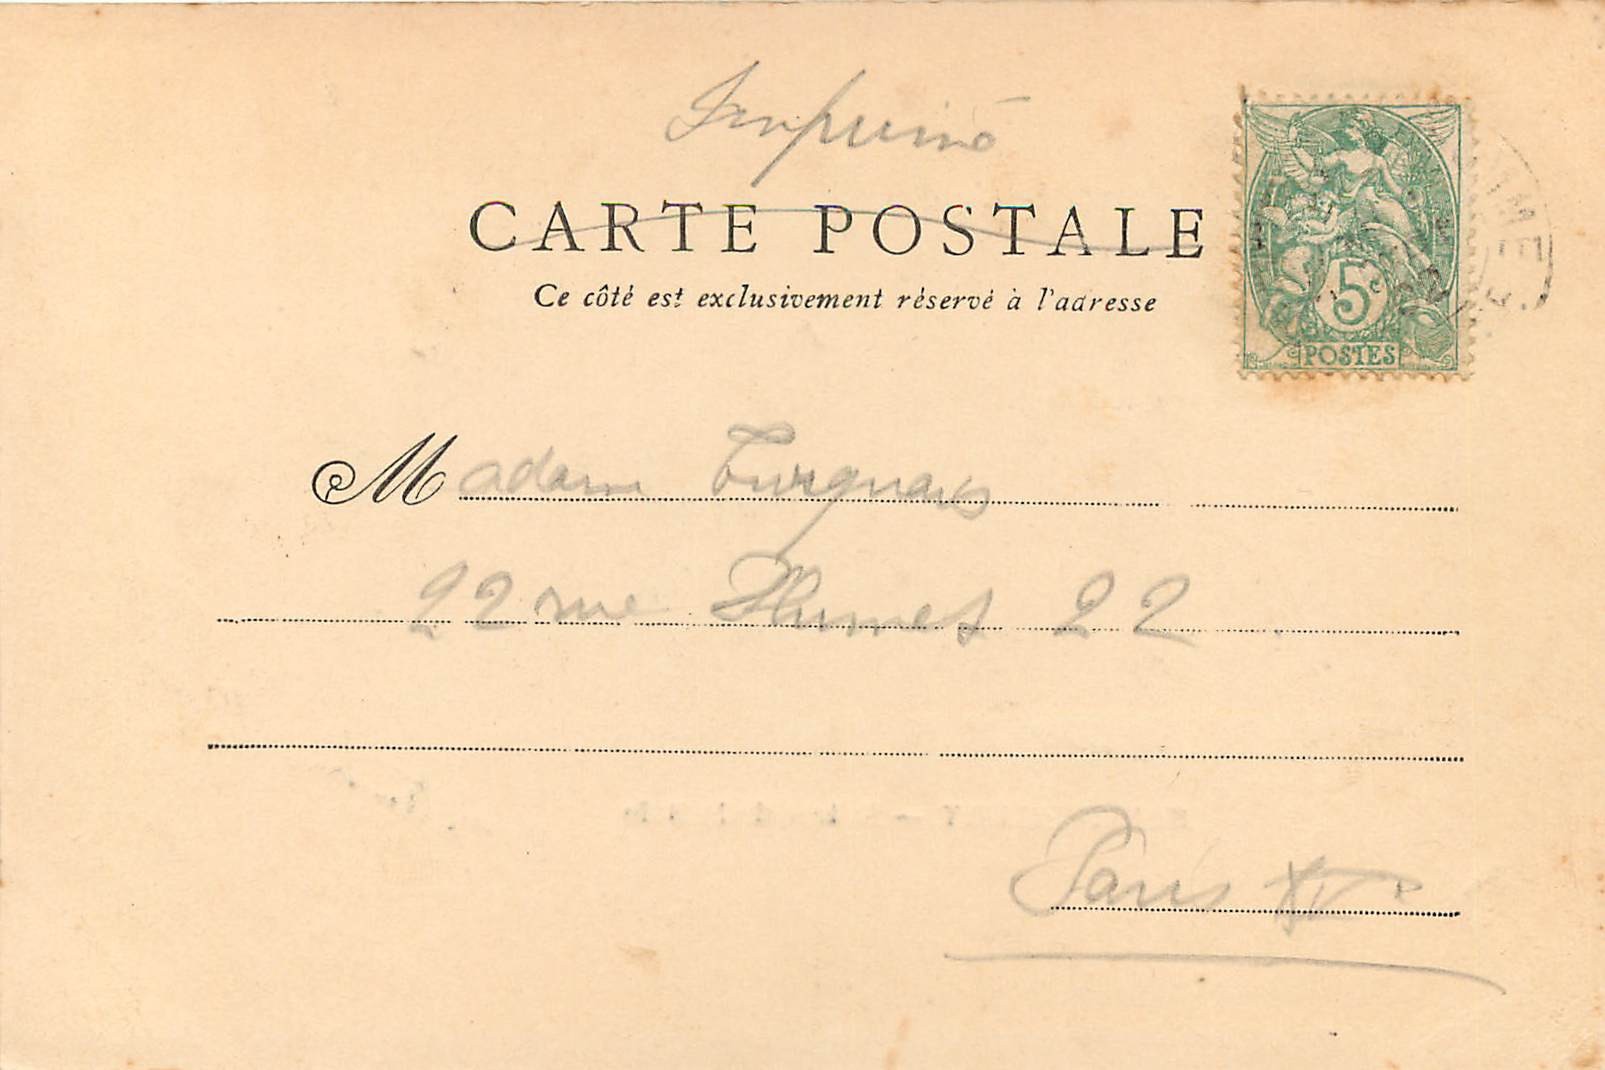 Imprimé
CARTE POSTALE
Ce côté est exclusivement réservé à l'adresse
5c
POSTES
Madame
22 rue Plumet 22
Paris XVe